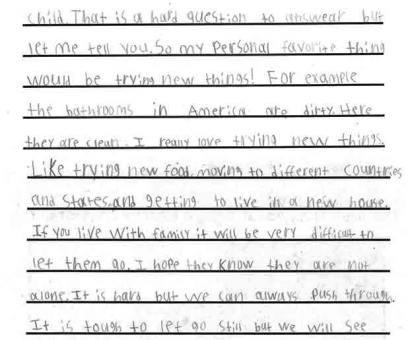 child. That is a hard question to answear but
let me tell you. So my Personal favorite thing
would be trying new things! For example
the bathrooms in America are dirty. Here
they are clean. I really love trying new things.
Like trying new food, moving to different countries
and states, and getting to live in a new house.
If you live with family it will be very difficult to
let them go. I hope they know they are not
alone. It is hard but we can always Push through.
It is tough to let go still but we will see